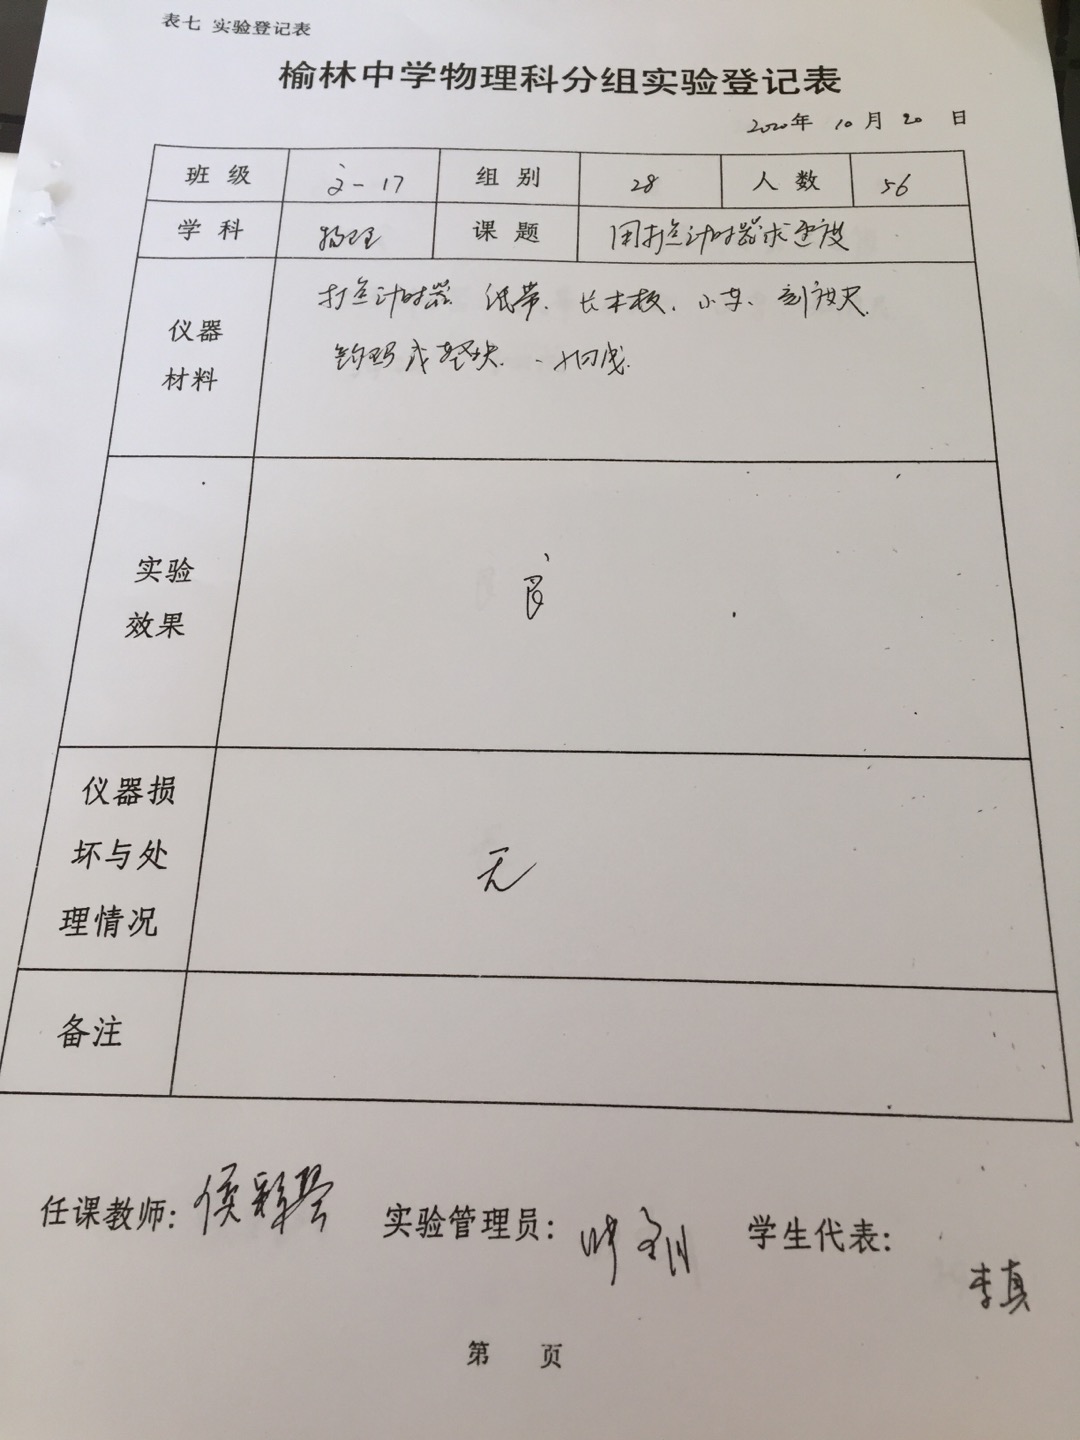 表七 实验登记表
榆林中学物理科分组实验登记表
2020年 10月 20 日
班级 2-17 组别 28 人数 56
学科 物理 课题 用打点计时器求速度
仪器材料 打点计时器 纸带、长木板、小车、刻度尺
钩码
实验效果 良
仪器损坏与处理情况 无
备注
任课教师: 侯彩琴 实验管理员: 学生代表: 李真
第 页